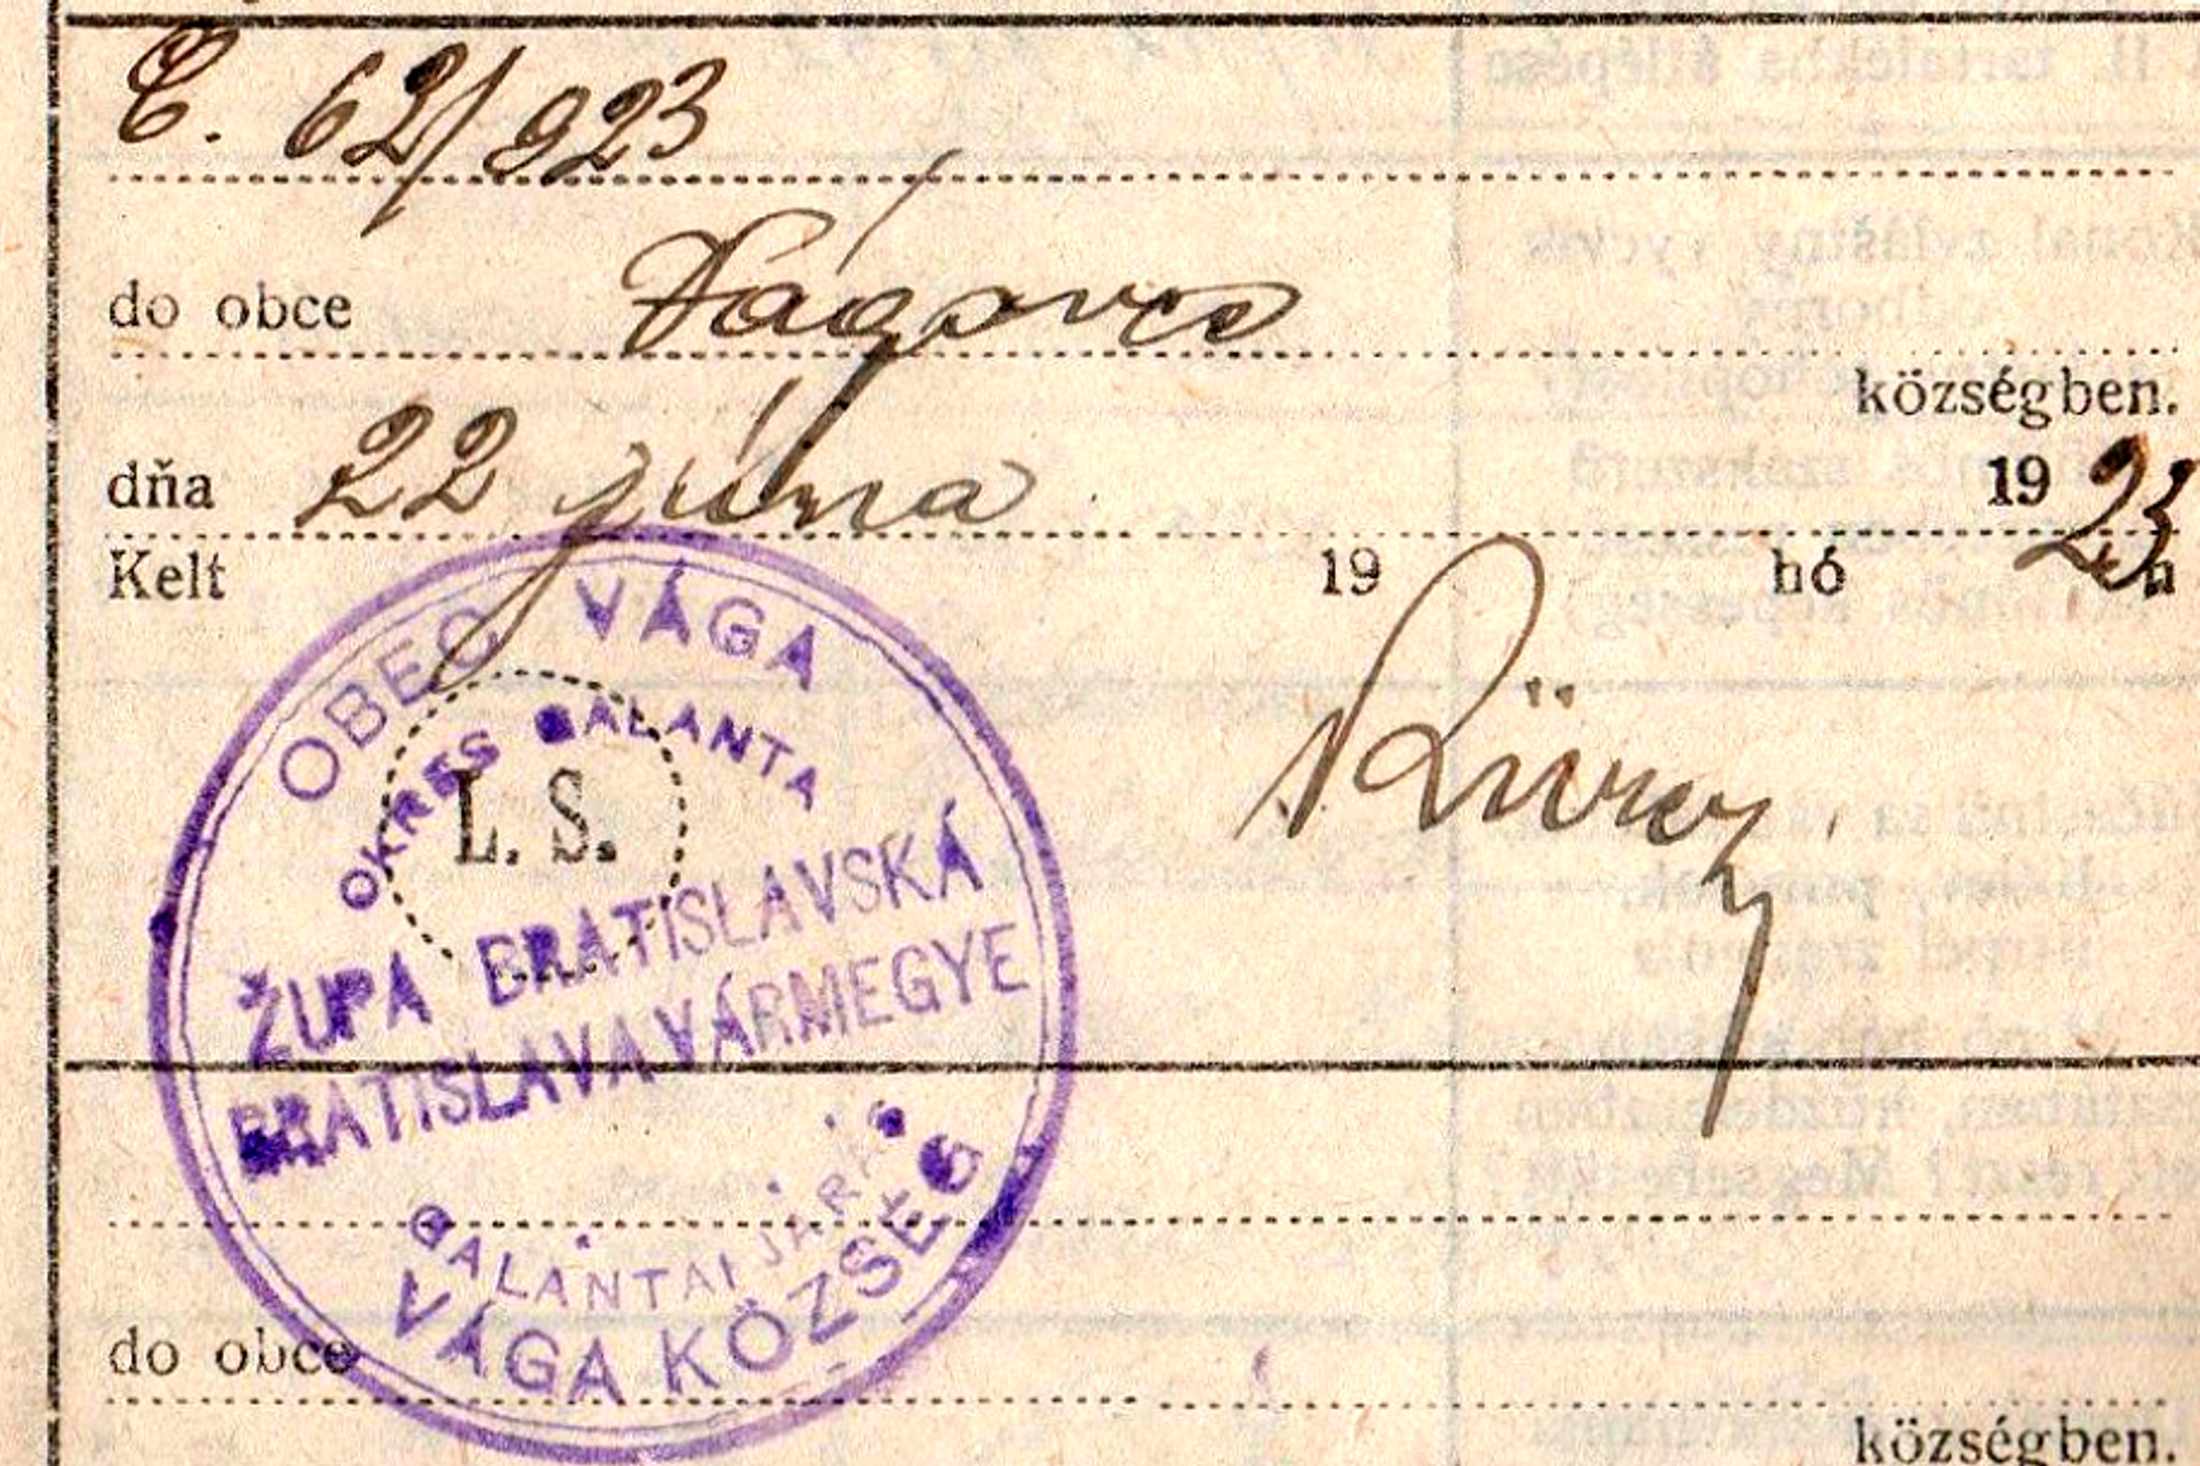 Č. 62/923
do obce Vágovce
községben.
dňa 22 júna 1923
Kelt 19 hó n
OBEC VÁGA
OKRES GALANTA
L. S.
ŽUPA BRATISLAVSKÁ
BRATISLAVAVÁRMEGYE
GALANTAI JÁRÁS
VÁGA KÖZSÉG
do obce
községben.